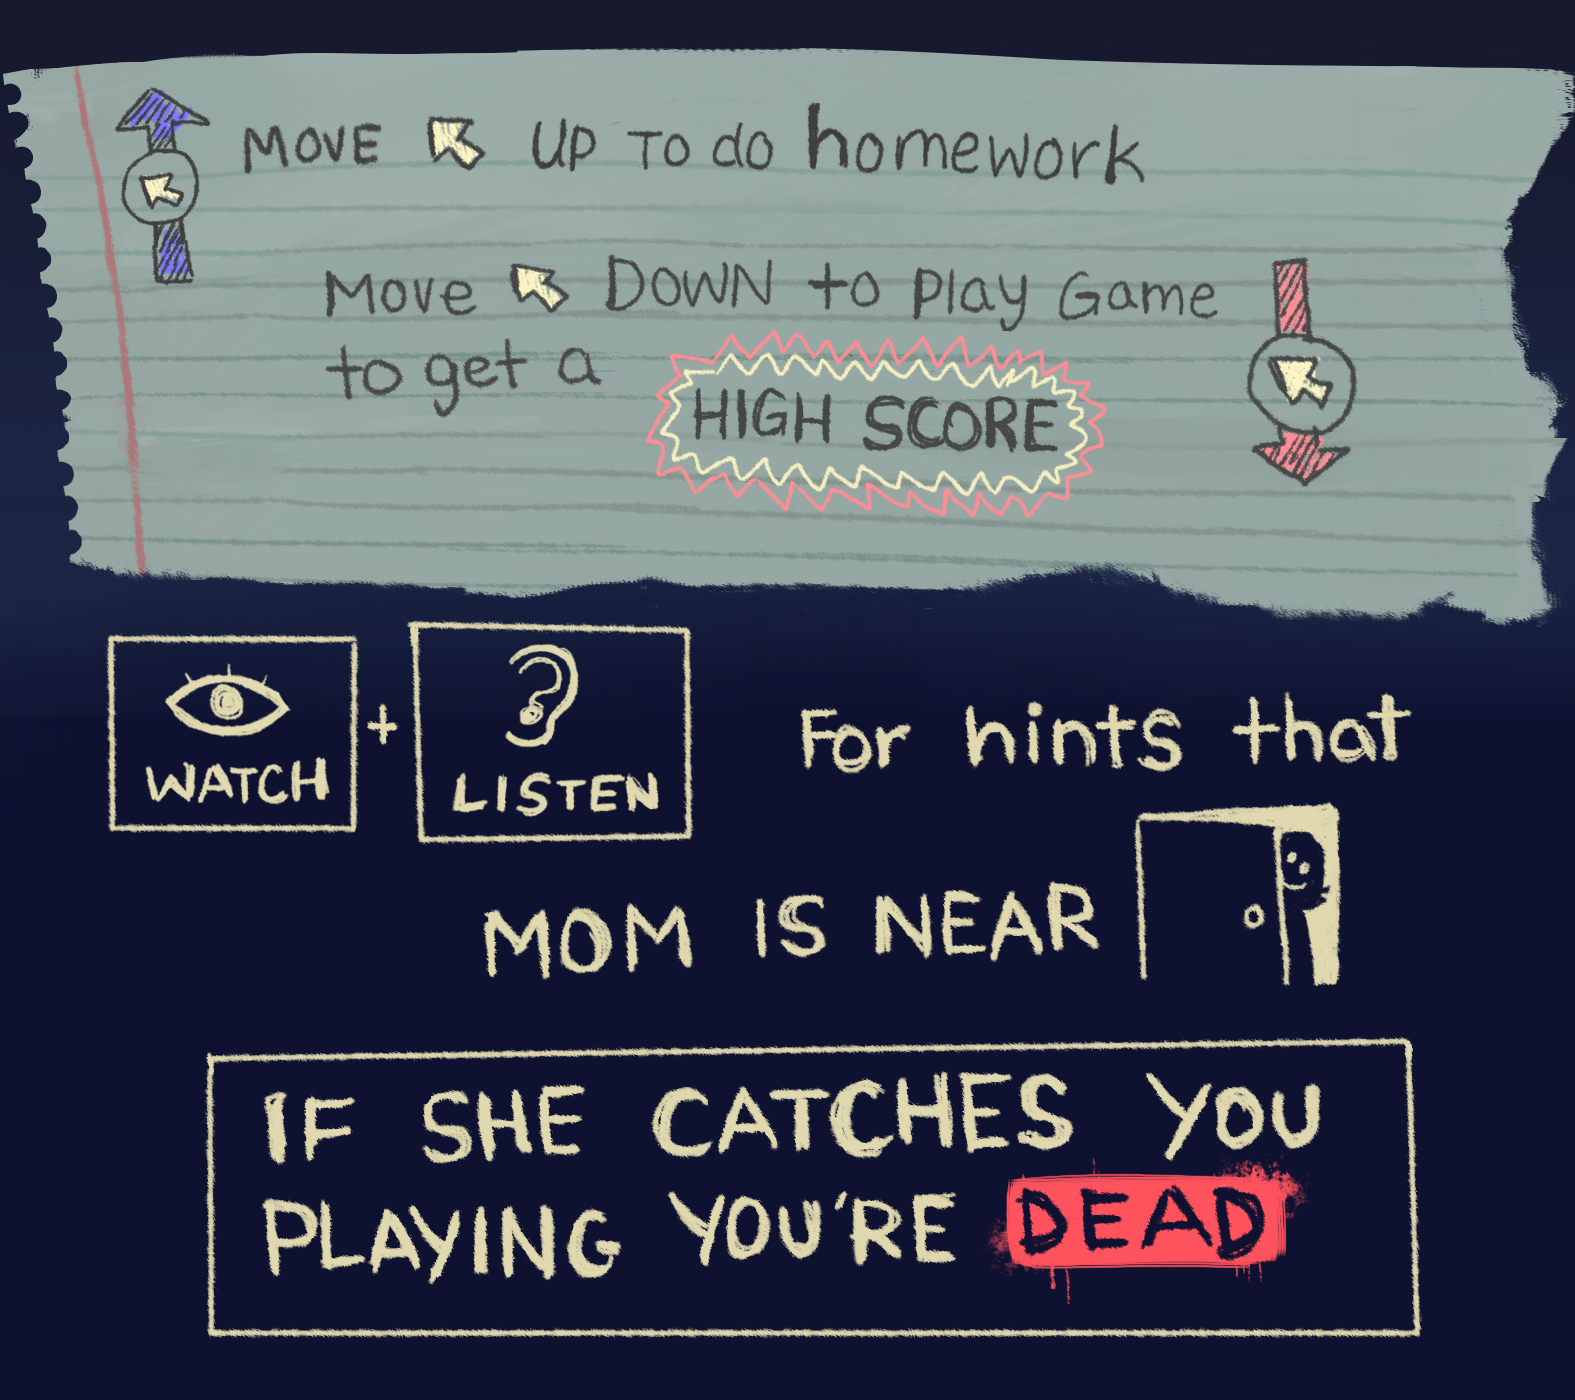 MOVE UP TO do homework
Move DOWN to play Game
to get a
HIGH SCORE
WATCH + LISTEN For hints that
MOM IS NEAR
IF SHE CATCHES YOU
PLAYING YOU'RE DEAD